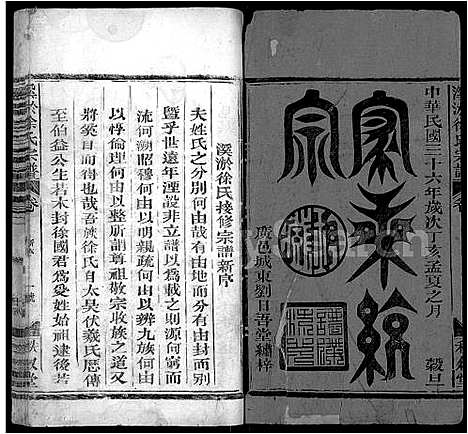 中華民國三十六年歲次丁亥孟夏之月 穀旦
宗
邑城東劉日善堂繡梓
溪淤徐氏接修宗譜新序
夫姓氏之分別何由哉有由地而分有由封而別
暨乎世遠年湮設非立譜以為載之則源何窮而
流何溯昭穆何由以明親疏何由以辨九族何由
以惇倫理何由以整所謂尊祖敬宗收族之道又
將奚自而作哉吾族徐氏自太昊伏羲氏歷傳
至伯益公生若木封徐國君為受姓始祖逮後若
溪淤徐氏宗譜